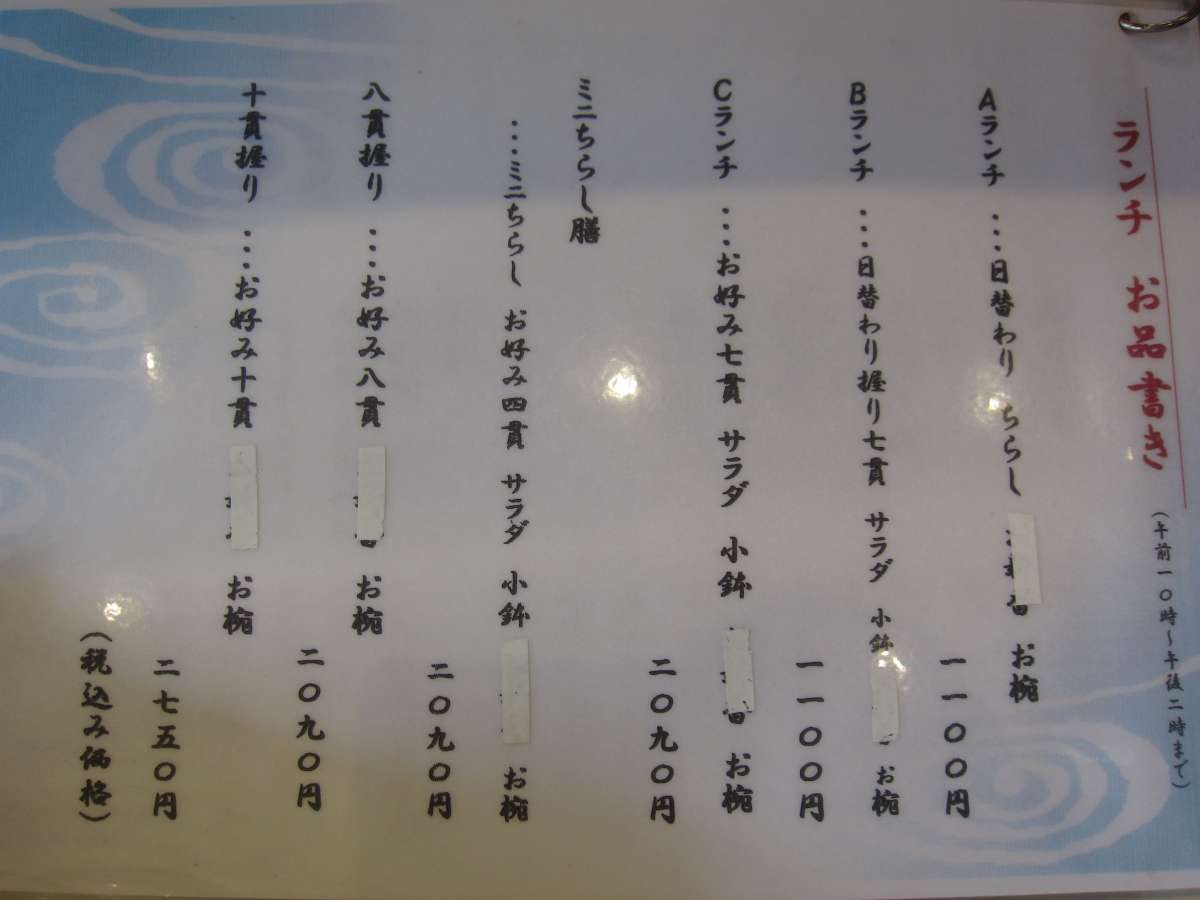 ランチ お品書き
(午前一〇時～午後二時まで)
Aランチ …日替わり ちらし お椀
一一〇〇円
Bランチ …日替わり握り七貫 サラダ 小鉢 お椀
一一〇〇円
Cランチ …お好み七貫 サラダ 小鉢 お椀
二〇九〇円
ミニちらし膳
…ミニちらし お好み四貫 サラダ 小鉢 お椀
二〇九〇円
八貫握り …お好み八貫 お椀
二〇九〇円
十貫握り …お好み十貫 お椀
二七五〇円
(税込み価格)